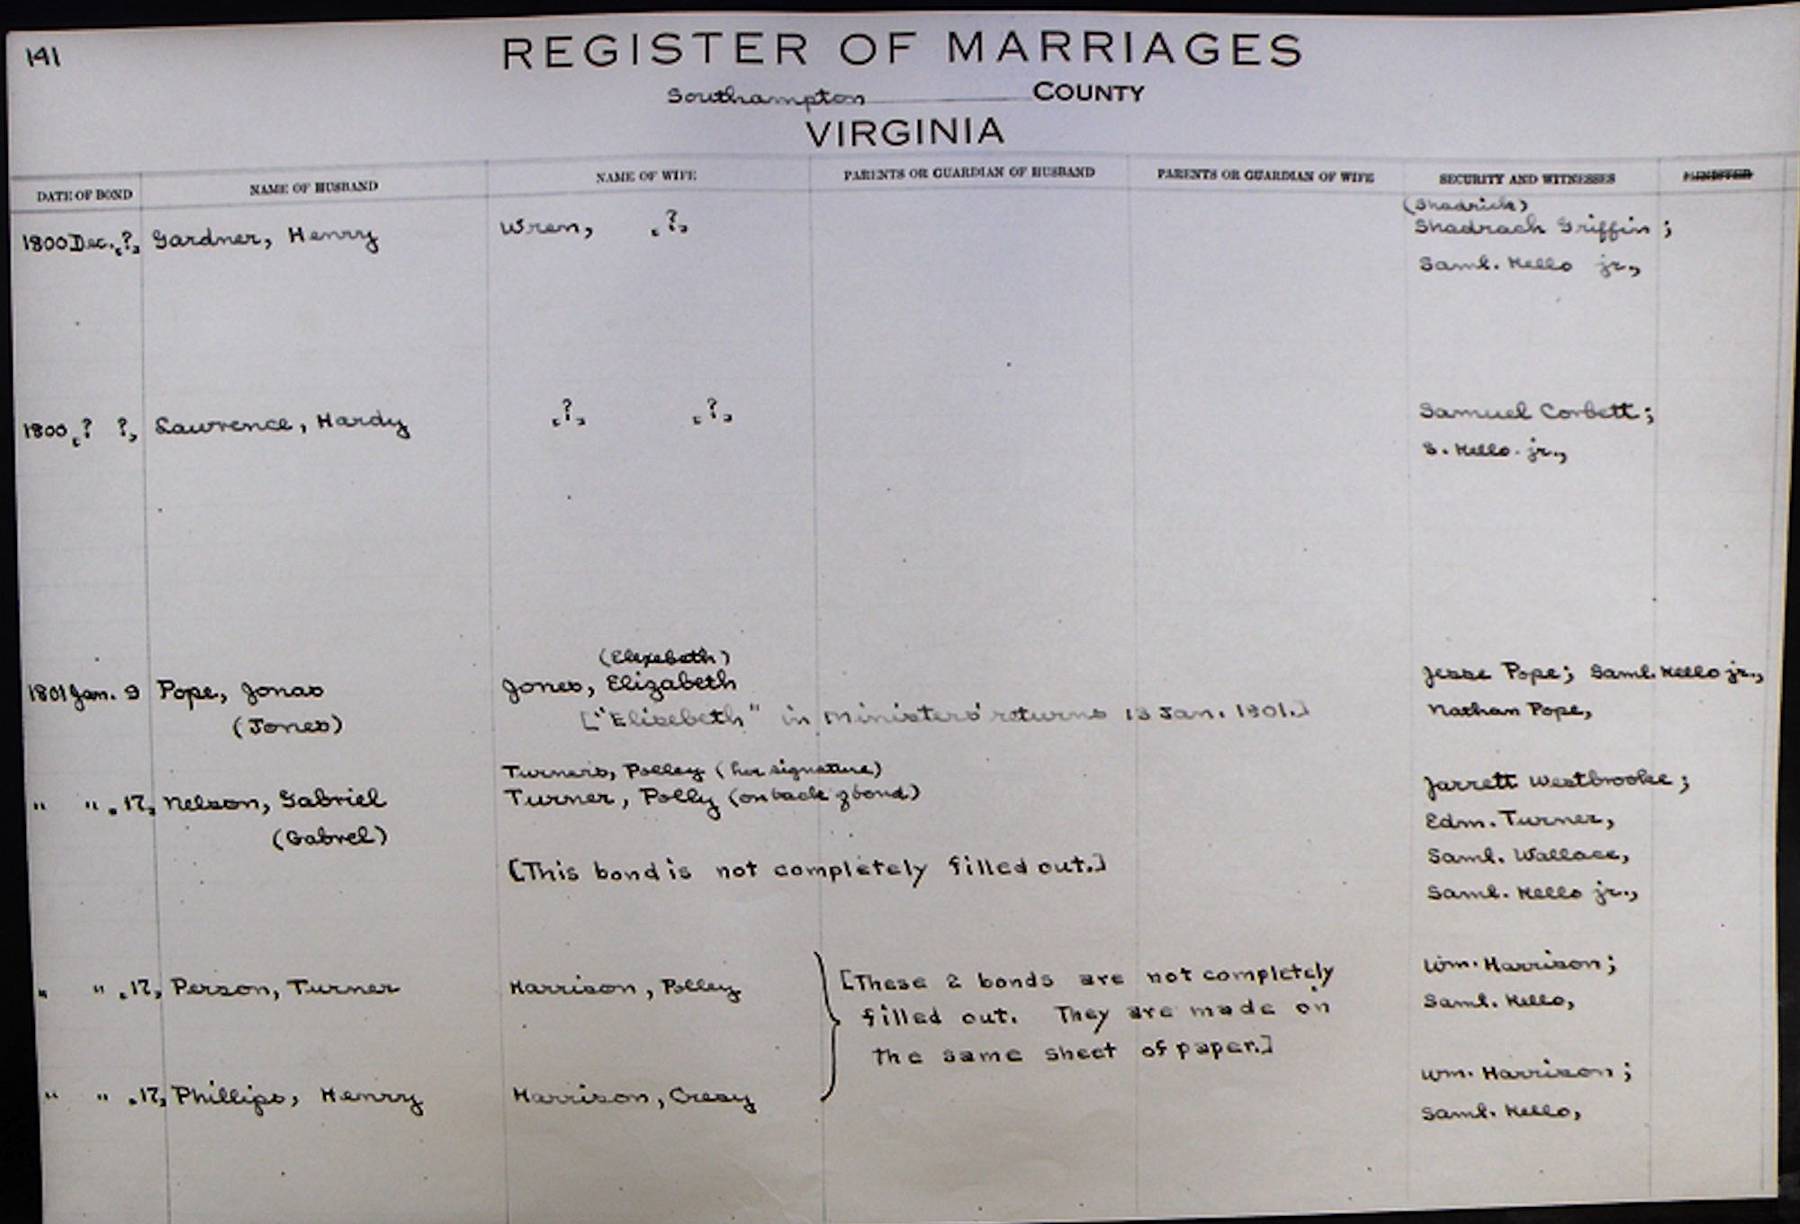 141
REGISTER OF MARRIAGES
Southampton COUNTY
VIRGINIA
DATE OF BOND NAME OF HUSBAND NAME OF WIFE PARENTS OR GUARDIAN OF HUSBAND PARENTS OR GUARDIAN OF WIFE SECURITY AND WITNESSES MINISTER
(Shadrick)
1800 Dec. [?] Gardner, Henry Wren, [?] Shadrach Griffin;
Saml. Kello jr.,
1800 [? ?] Lawrence, Hardy [?] [?] Samuel Corbett;
S. Kello jr.,
(Elizebeth)
1801 Jan. 9 Pope, Jonas Jones, Elizabeth Jesse Pope; Saml. Kello jr.,
(Jones) ["Elisebeth" in Ministers' returns 13 Jan. 1801.] Nathan Pope,
Turners, Polley (her signature)
" " [17] Nelson, Gabriel Turner, Polly (on back of bond) Jarrett Westbrooke;
(Gabrel) Edm. Turner,
[This bond is not completely filled out.] Saml. Wallace,
Saml. Kello jr.,
" " [17] Person, Turner Harrison, Polley [These 2 bonds are not completely Wm. Harrison;
filled out. They are made on Saml. Kello,
the same sheet of paper.]
" " [17] Phillips, Henry Harrison, Cresy Wm. Harrison;
Saml. Kello,